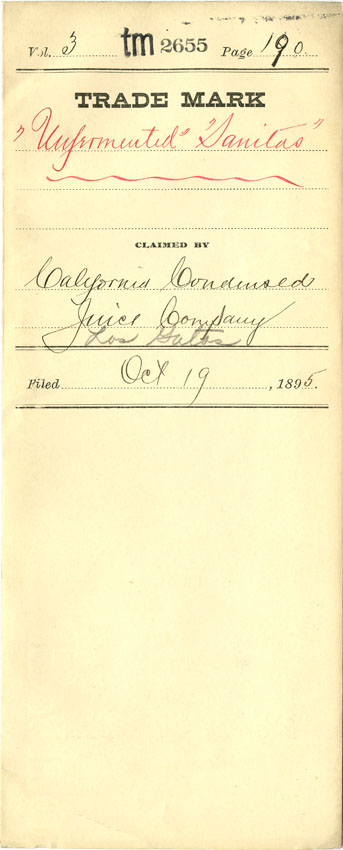 Vol. 3 tm 2655 Page 190
TRADE MARK
"Unfermented" "Sanitas"
CLAIMED BY
California Condensed
Juice Company
Los Gatos
Filed Oct 19, 1895.